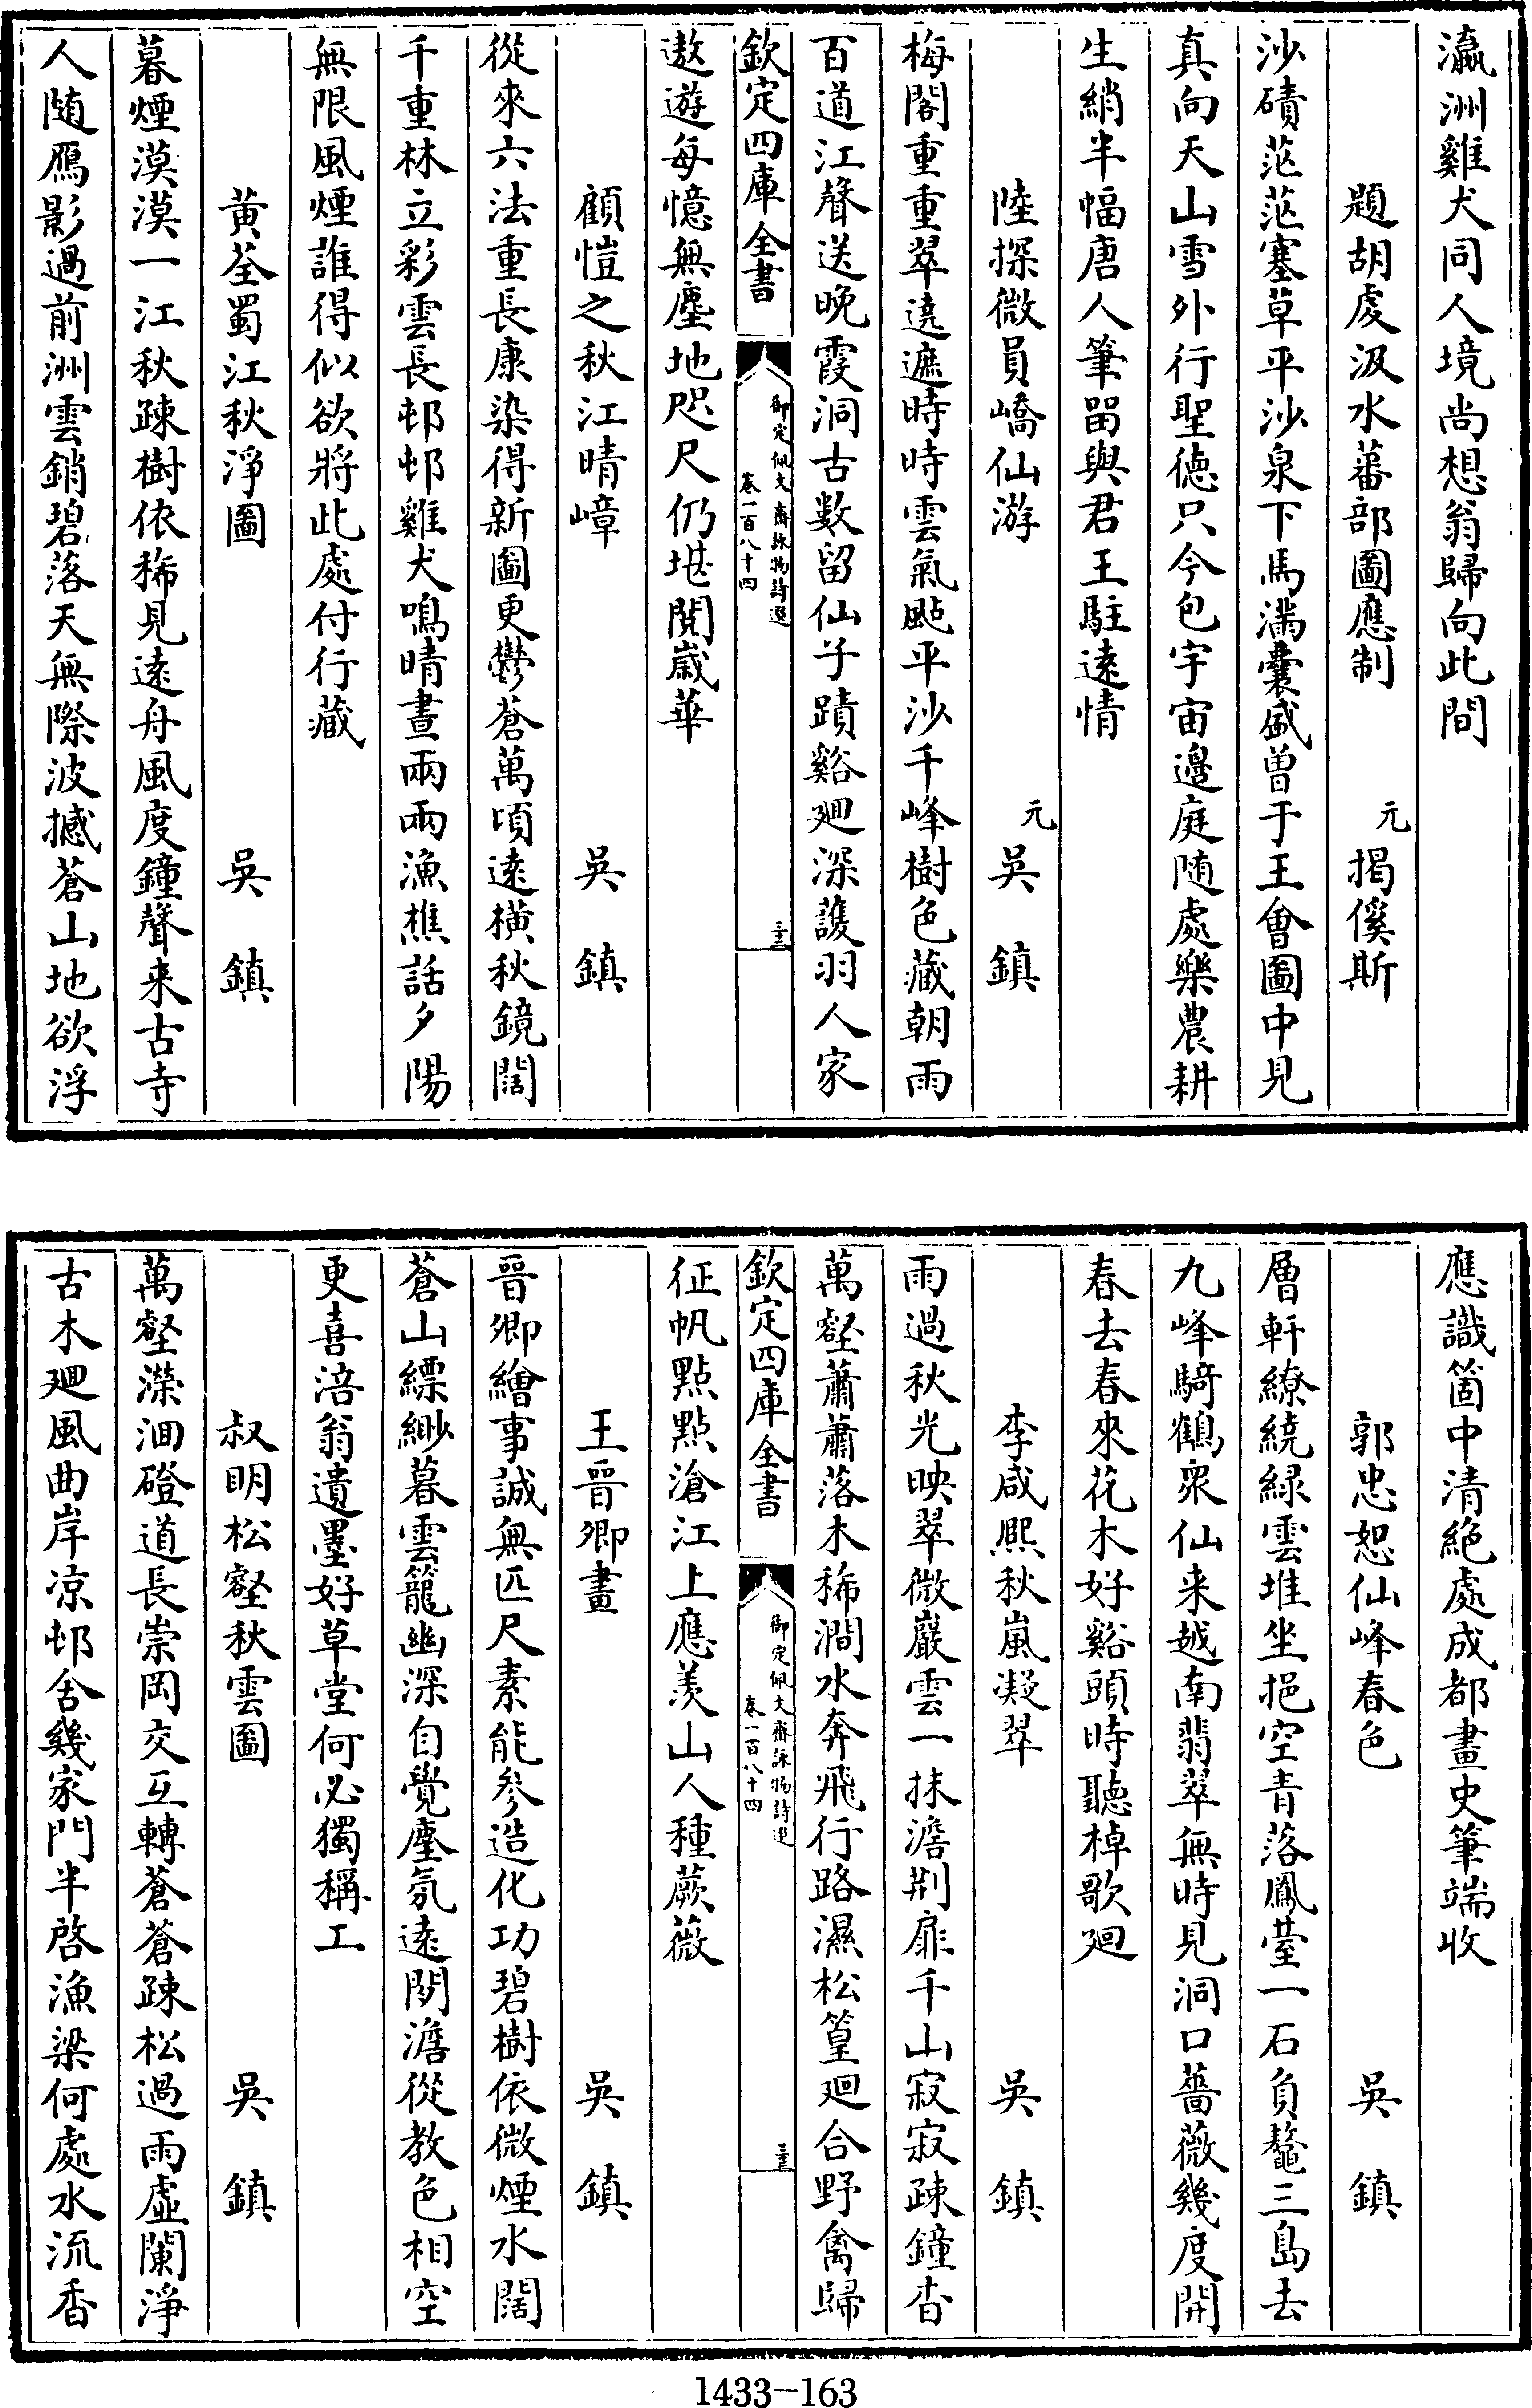 瀛洲雞犬同人境尚想翁歸向此間
題胡虔汲水蕃部圖應制　元　揭傒斯
沙磧茫茫塞草平沙泉下馬滿囊盛曾于王會圖中見
真向天山雪外行聖德只今包宇宙邊庭随處樂農耕
生綃半幅唐人筆留與君王駐遠情
陸探微員嶠仙游　元　吳鎮
梅閣重重翠遶遮時時雲氣颭平沙千峰樹色藏朝雨
百道江聲送晚霞洞古數留仙子蹟谿廻深護羽人家
欽定四庫全書　御定佩文齋詠物詩選　卷一百八十四　三十二
遨遊每憶無塵地咫尺仍堪閱歲華
顧愷之秋江晴嶂　吳鎮
從來六法重長康染得新圖更鬱蒼萬頃遠橫秋鏡闊
千重林立彩雲長邨邨雞犬鳴晴晝兩兩漁樵話夕陽
無限風煙誰得似欲將此處付行藏
黃荃蜀江秋淨圖　吳鎮
暮煙漠漠一江秋疎樹依稀見遠舟風度鐘聲来古寺
人随鴈影過前洲雲銷碧落天無際波撼蒼山地欲浮
應識箇中清絕處成都畫史筆端收
郭忠恕仙峰春色　吳鎮
層軒繚繞緑雲堆坐挹空青落鳳臺一石負鼇三島去
九峰騎鶴衆仙来越南翡翠無時見洞口薔薇幾度開
春去春來花木好谿頭時聽棹歌廻
李咸熙秋嵐凝翠　吳鎮
雨過秋光映翠微巖雲一抹澹荆扉千山寂寂疎鐘杳
萬壑蕭蕭落木稀澗水奔飛行路濕松篁廻合野禽歸
欽定四庫全書　御定佩文齋詠物詩選　卷一百八十四　三十三
征帆點點滄江上應羨山人種蕨薇
王晉卿畫　吳鎮
晉卿繪事誠無匹尺素能參造化功碧樹依微煙水闊
蒼山縹緲暮雲籠幽深自覺塵氛遠閒澹從教色相空
更喜涪翁遺墨好草堂何必獨稱工
叔明松壑秋雲圖　吳鎮
萬壑濚洄磴道長崇岡交互轉蒼蒼疎松過雨虛闌淨
古木廻風曲岸凉邨舍幾家門半啓漁梁何處水流香
1433-163